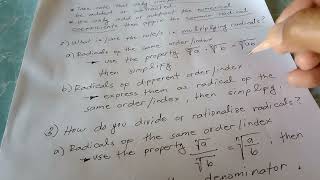 * Take note that only
be added or subtracted
* Use only add or subtract the numerical
coefficients and copy the common radical.
2) What is/are the rule/s in multiplying radicals?
a) Radicals of the same order/index
→ use the property ⁿ√a · ⁿ√b = ⁿ√ab
then simplify
b) Radicals of different order/index
→ express them as radical of the
same order/index, then simplify.
3) How do you divide or rationalize radicals?
a) Radicals of the same order/index
→ use the property ⁿ√a / ⁿ√b = ⁿ√(a/b), then
denominator.